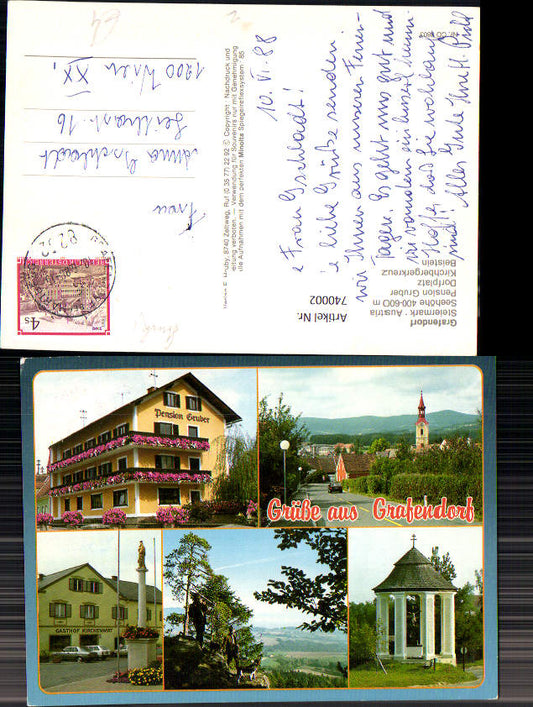 Nr. CO 1803
10. VI. 88
Frau Gschladt!
liebe Grüße senden
wir Ihnen aus unseren Ferien-
tagen. Es geht uns gut und
wir wandern im Hügel
Hoffe daß Sie wohlauf
sind! Alles Gute Ihre H.
Frau
Anna Gschladt
16
1200 Wien XX,
4 S
Grafendorf
Steiermark · Austria
Seehöhe 400-600 m
Pension Gruber
Dorfplatz
Kirchbergerkreuz
Beistein
Artikel Nr.
740002
Hruby, 8740 Zeltweg, Ruf (0 35 77) 22 92 © Copyright: Nachdruck und
eitung verboten. — Verwendung für Souvenirs nur mit Genehmigung
die Aufnahmen mit dem perfekten Minolta Spiegelreflexsystem · 85
Pension Gruber
Grüße aus Grafendorf
GASTHOF KIRCHENWIRT